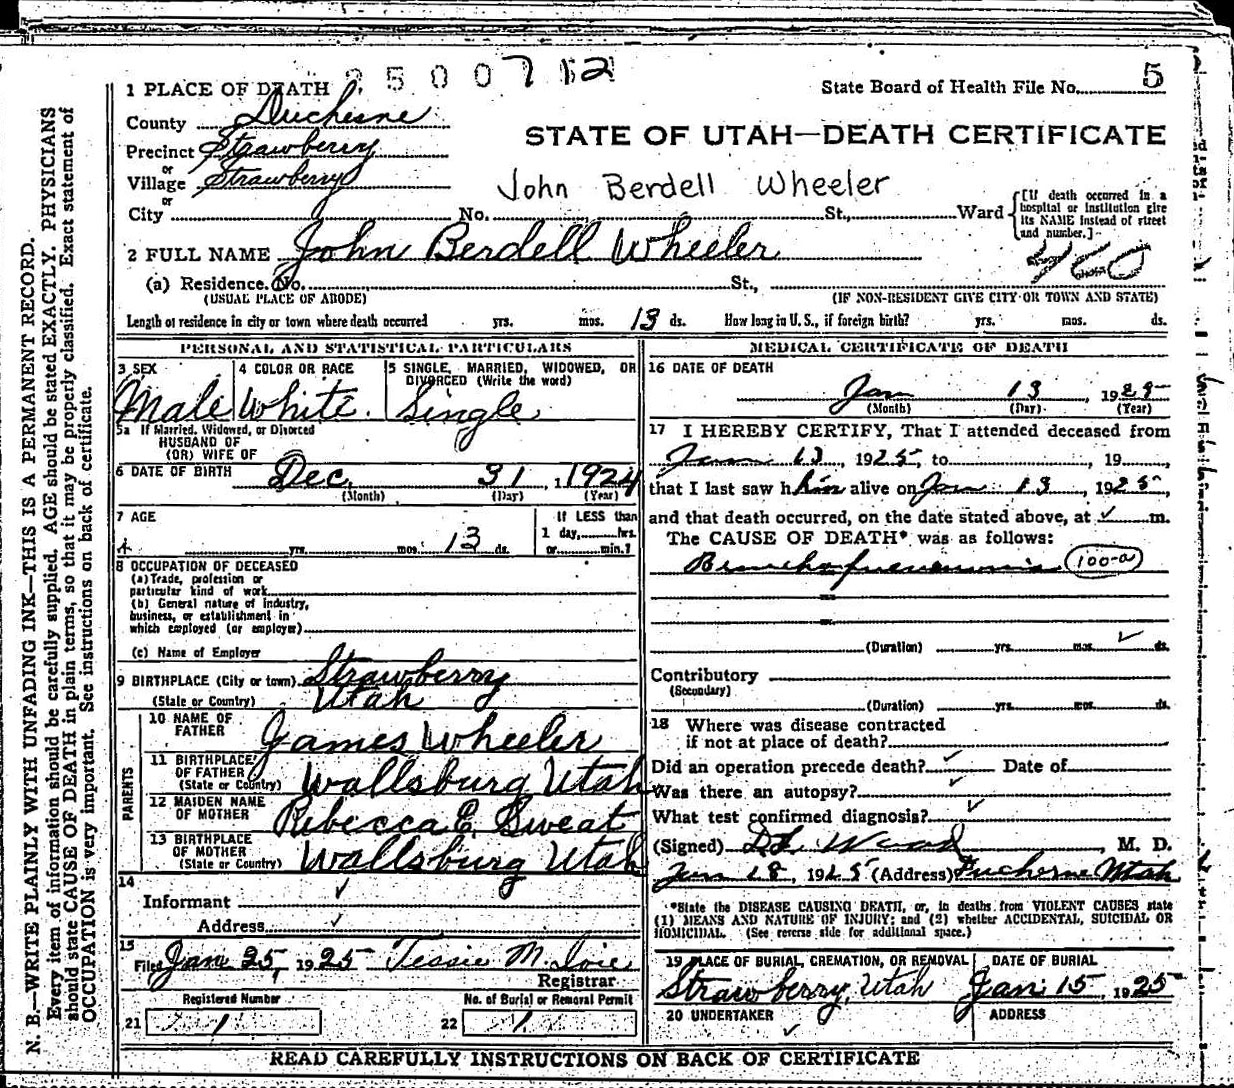 2500712
1 PLACE OF DEATH
State Board of Health File No. 5
County Duchesne
STATE OF UTAH—DEATH CERTIFICATE
Precinct Strawberry
or
Village Strawberry
John Berdell Wheeler
or
City No. St., Ward
[If death occurred in a
hospital or institution give
its NAME instead of street
and number.]
2 FULL NAME John Berdell Wheeler
460
(a) Residence. No. St.,
(USUAL PLACE OF ABODE) (IF NON-RESIDENT GIVE CITY OR TOWN AND STATE)
Length of residence in city or town where death occurred yrs. mos. 13 ds. How long in U. S., if foreign birth? yrs. mos. ds.
PERSONAL AND STATISTICAL PARTICULARS
3 SEX
Male
4 COLOR OR RACE
White.
5 SINGLE, MARRIED, WIDOWED, OR
DIVORCED (Write the word)
Single
5a If Married, Widowed, or Divorced
HUSBAND OF
(OR) WIFE OF
6 DATE OF BIRTH Dec 31, 1924
(Month) (Day) (Year)
7 AGE
yrs. mos. 13 ds.
If LESS than
1 day, hrs.
or min.?
8 OCCUPATION OF DECEASED
(a) Trade, profession or
particular kind of work
(b) General nature of industry,
business, or establishment in
which employed (or employer)
(c) Name of Employer
9 BIRTHPLACE (City or town) Strawberry
(State or Country) Utah
PARENTS
10 NAME OF
FATHER James Wheeler
11 BIRTHPLACE
OF FATHER
(State or Country) Wallsburg Utah
12 MAIDEN NAME
OF MOTHER Rebecca E. Sweat
13 BIRTHPLACE
OF MOTHER
(State or Country) Wallsburg Utah
14
Informant ✓
Address ✓
15
Filed Jan 25, 1925 Tessie M.
Registrar
Registered Number No. of Burial or Removal Permit
21 1 22 1
MEDICAL CERTIFICATE OF DEATH
16 DATE OF DEATH
Jan 13, 1925
(Month) (Day) (Year)
17 I HEREBY CERTIFY, That I attended deceased from
Jan 13, 1925, to , 19 ,
that I last saw him alive on Jan 13, 1925,
and that death occurred, on the date stated above, at ✓ m.
The CAUSE OF DEATH* was as follows:
Bronchopneumonia 100-a
(Duration) yrs. mos. ✓ ds.
Contributory
(Secondary)
(Duration) yrs. mos. ds.
18 Where was disease contracted
if not at place of death?
Did an operation precede death? ✓ Date of
Was there an autopsy? ✓
What test confirmed diagnosis? ✓
(Signed) , M. D.
Jan 18, 1925 (Address) Duchesne Utah
*State the DISEASE CAUSING DEATH, or, in deaths from VIOLENT CAUSES state
(1) MEANS AND NATURE OF INJURY; and (2) whether ACCIDENTAL, SUICIDAL OR
HOMICIDAL. (See reverse side for additional space.)
19 PLACE OF BURIAL, CREMATION, OR REMOVAL
Strawberry, Utah
DATE OF BURIAL
Jan 15, 1925
20 UNDERTAKER ✓
ADDRESS
READ CAREFULLY INSTRUCTIONS ON BACK OF CERTIFICATE
N. B.—WRITE PLAINLY WITH UNFADING INK—THIS IS A PERMANENT RECORD.
Every item of information should be carefully supplied. AGE should be stated EXACTLY. PHYSICIANS
should state CAUSE OF DEATH in plain terms, so that it may be properly classified. Exact statement of
OCCUPATION is very important. See instructions on back of certificate.